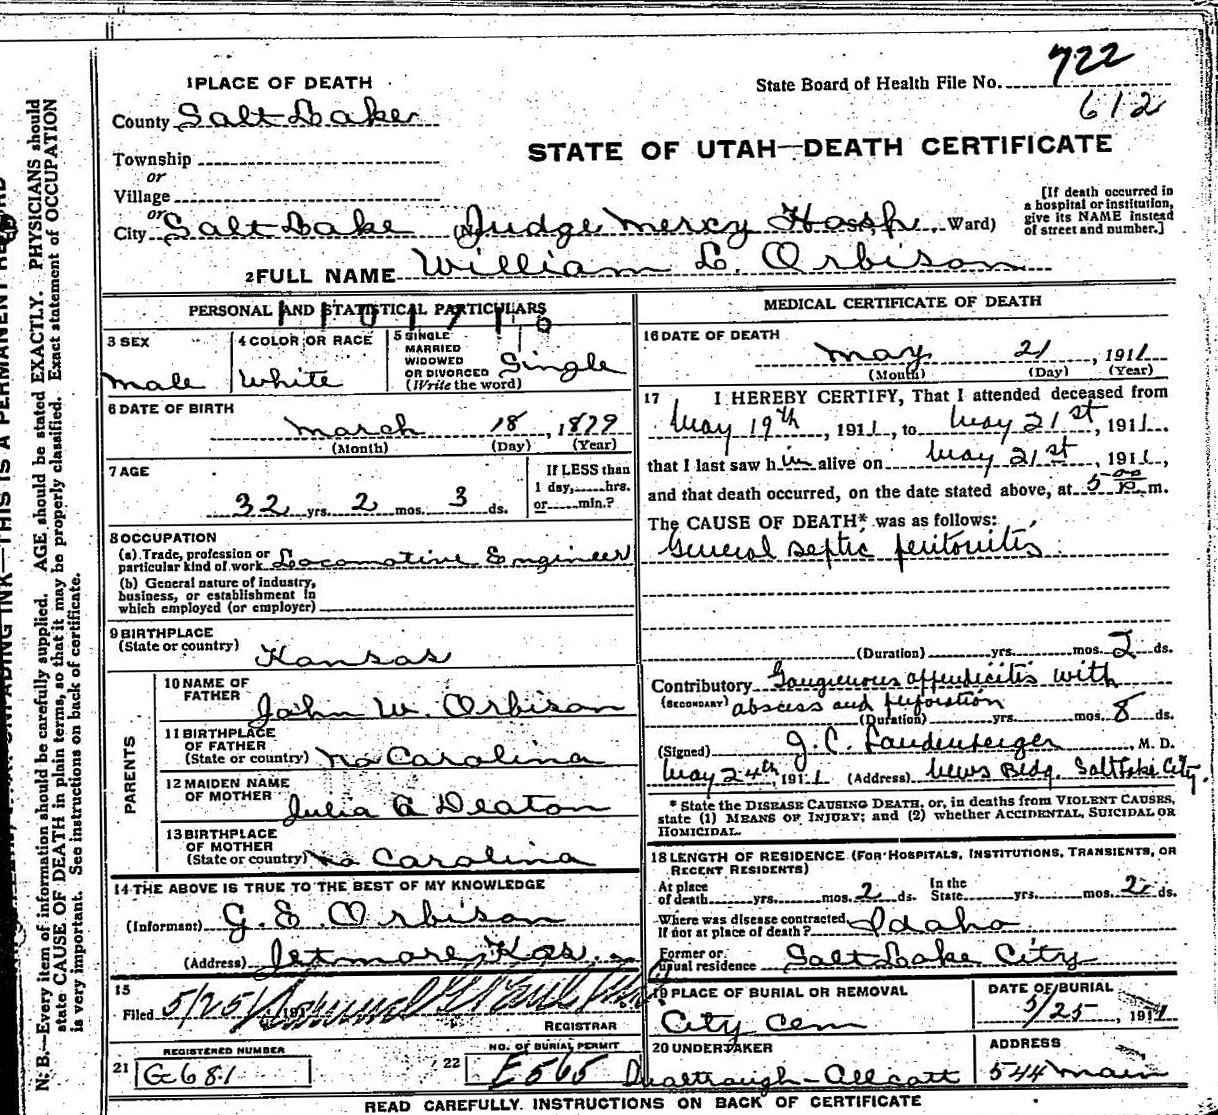 722
State Board of Health File No.
612
1 PLACE OF DEATH
County Salt Lake
STATE OF UTAH—DEATH CERTIFICATE
Township
or
Village
or
City Salt Lake (No. Judge Mercy Hosp. Ward)
[If death occurred in
a hospital or institution,
give its NAME instead
of street and number.]
2 FULL NAME William L. Orbison
PERSONAL AND STATISTICAL PARTICULARS
3 SEX
Male
4 COLOR OR RACE
White
5 SINGLE
MARRIED
WIDOWED
OR DIVORCED
(Write the word)
Single
6 DATE OF BIRTH
March 18, 1879
(Month) (Day) (Year)
7 AGE
32 yrs. 2 mos. 3 ds.
If LESS than
1 day,......hrs.
or......min.?
8 OCCUPATION
(a) Trade, profession or
particular kind of work Locomotive Engineer
(b) General nature of industry,
business, or establishment in
which employed (or employer)
9 BIRTHPLACE
(State or country)
Kansas
PARENTS
10 NAME OF
FATHER
John W. Orbison
11 BIRTHPLACE
OF FATHER
(State or country) No Carolina
12 MAIDEN NAME
OF MOTHER
Julia A Deaton
13 BIRTHPLACE
OF MOTHER
(State or country) No Carolina
14 THE ABOVE IS TRUE TO THE BEST OF MY KNOWLEDGE
(Informant) G. E. Orbison
(Address) Jetmore, Kas.
15
Filed 5/25/ 191
REGISTRAR
REGISTERED NUMBER
21 G681
NO. OF BURIAL PERMIT
22 E565
MEDICAL CERTIFICATE OF DEATH
16 DATE OF DEATH
May 21, 1911
(Month) (Day) (Year)
17 I HEREBY CERTIFY, That I attended deceased from
May 19th, 1911, to May 21st, 1911.
that I last saw him alive on May 21st, 1911,
and that death occurred, on the date stated above, at 5 m.
The CAUSE OF DEATH* was as follows:
General septic peritonitis
(Duration) yrs. mos. 2 ds.
Contributory Gangrenous appendicitis with
(SECONDARY) abscess and perforation
(Duration) yrs. mos. 8 ds.
(Signed) J. C. Landenberger, M. D.
May 24th, 1911 (Address) News Bldg. Salt Lake City.
* State the DISEASE CAUSING DEATH, or, in deaths from VIOLENT CAUSES,
state (1) MEANS OF INJURY; and (2) whether ACCIDENTAL, SUICIDAL OR
HOMICIDAL.
18 LENGTH OF RESIDENCE (FOR HOSPITALS, INSTITUTIONS, TRANSIENTS, OR
RECENT RESIDENTS)
At place
of death yrs. mos. 2 ds.
In the
State yrs. mos. 2 ds.
Where was disease contracted,
If not at place of death? Idaho
Former or
usual residence Salt Lake City
19 PLACE OF BURIAL OR REMOVAL
City Cem
DATE OF BURIAL
5/25, 1911
20 UNDERTAKER
ADDRESS
544 Main
READ CAREFULLY. INSTRUCTIONS ON BACK OF CERTIFICATE
N. B.—Every item of information should be carefully supplied. AGE should be stated EXACTLY. PHYSICIANS should
state CAUSE OF DEATH in plain terms, so that it may be properly classified. Exact statement of OCCUPATION
is very important. See instructions on back of certificate.
THIS IS A PERMANENT